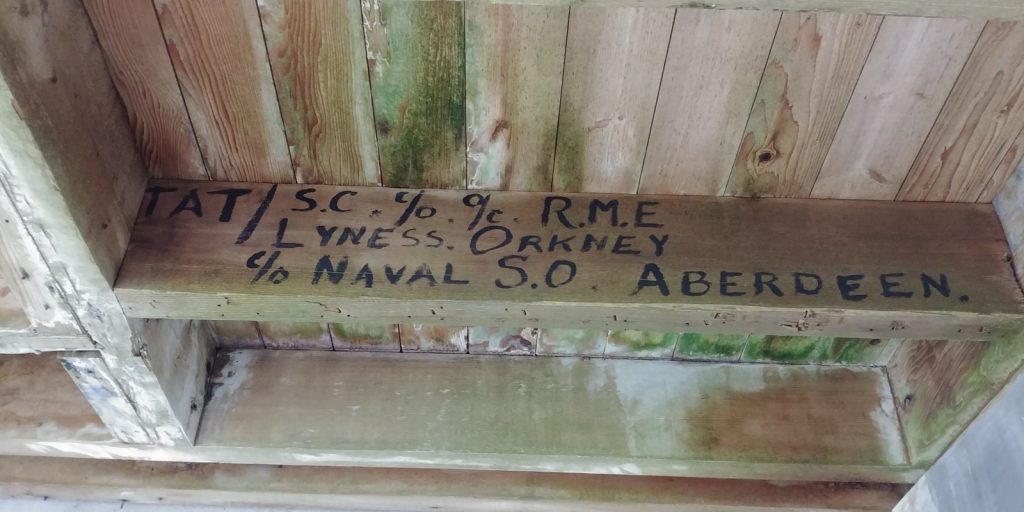 TAT/ S.C. c/o. o/c. R.M.E
LYNESS. ORKNEY
c/o NAVAL S.O. ABERDEEN.